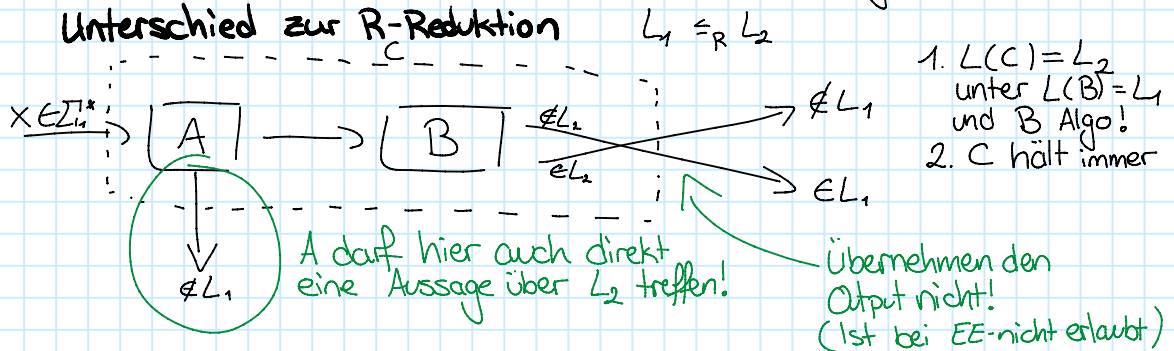 Unterschied zur R-Reduktion
L₁ ≤_R L₂
C
X ∈ Σ₁*
A
B
∉L₂
∈L₂
∉L₁
∈L₁
∉L₁
1. L(C) = L₂
unter L(B) = L₁
und B Algo!
2. C hält immer
A darf hier auch direkt
eine Aussage über L₂ treffen!
Übernehmen den
Output nicht!
(Ist bei EE-nicht erlaubt)